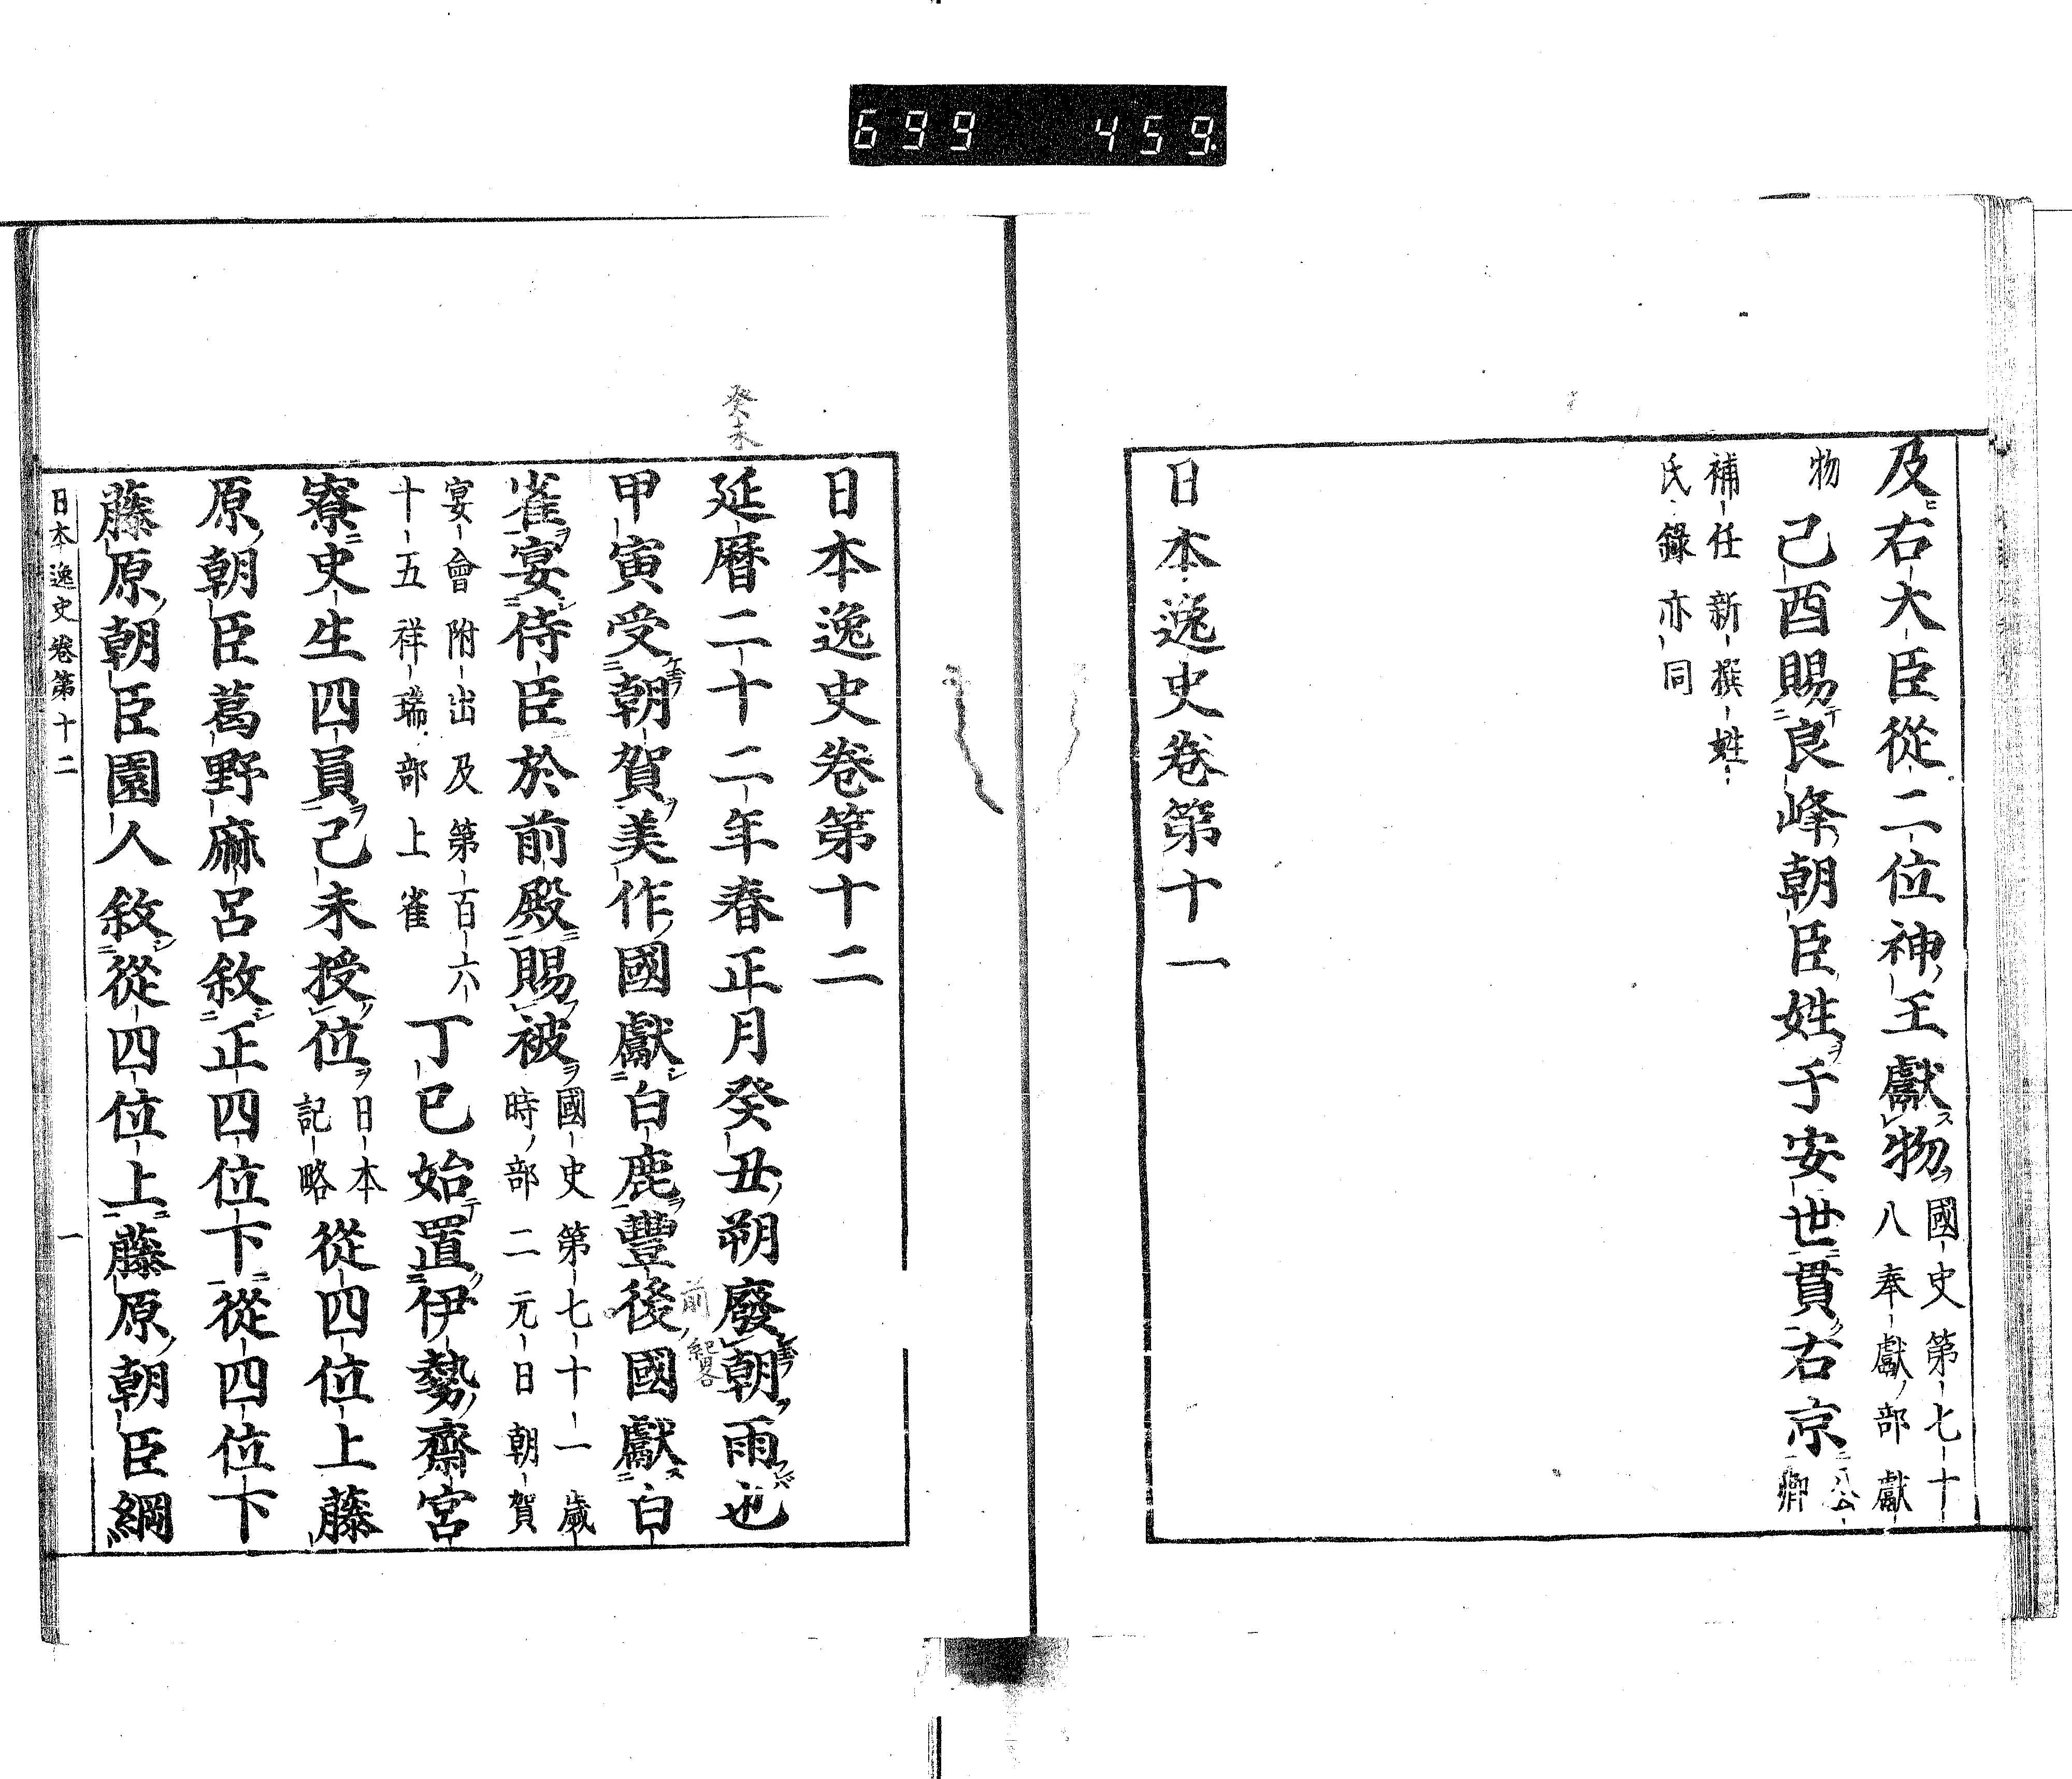 699 459
及右大臣從二位神王獻物國史第七十
八奉獻部獻
物己酉賜良峰朝臣姓于安世貫右京公
卿
補任新撰姓
氏錄亦同
日本逸史卷第十一
癸未
日本逸史卷第十二
延曆二十二年春正月癸丑朔廢朝雨也
甲寅受朝賀美作國獻白鹿豐後國獻白
前紀畧
雀宴侍臣於前殿賜被國史第七十一歲
時部二元日朝賀
宴會附出及第百六
十五祥瑞部上雀
丁巳始置伊勢齋宮
寮史生四員己未授位日本
記略
從四位上藤
原朝臣葛野麻呂敘正四位下從四位下
藤原朝臣園人敘從四位上藤原朝臣綱
日本逸史卷第十二 一